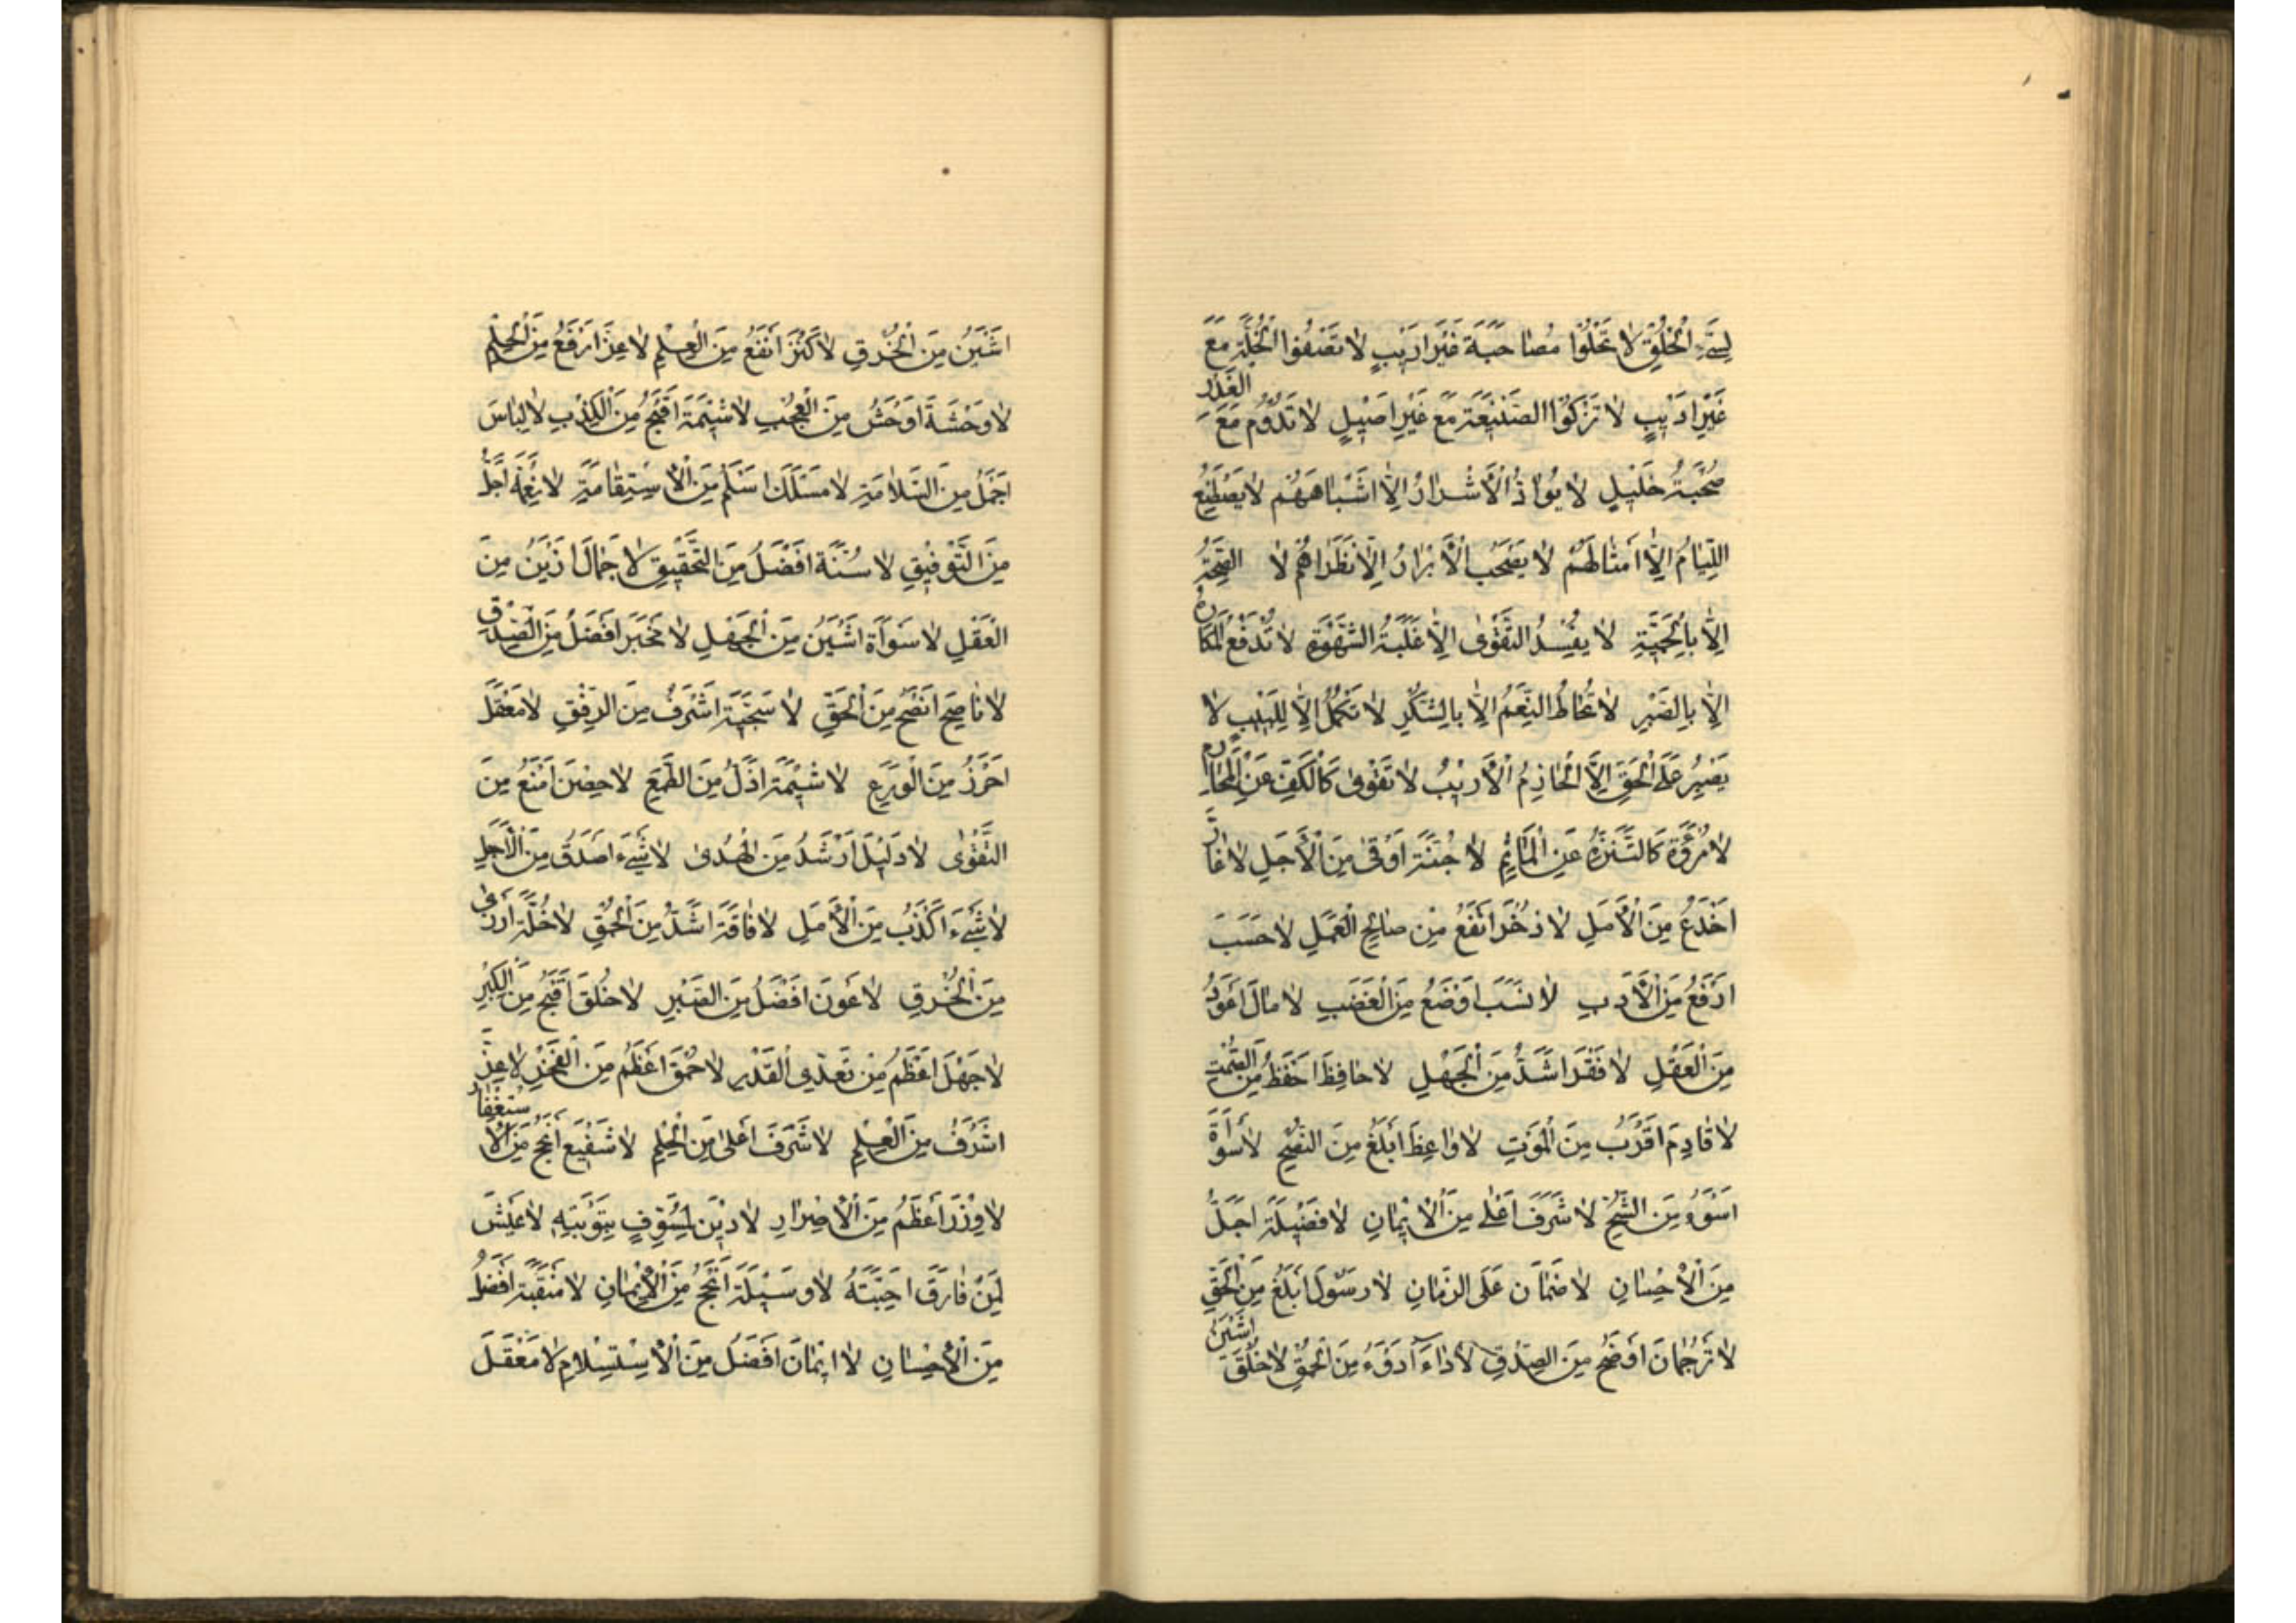 لِسَيِّءِ الْخُلُقِ لَا تَحْلُوا مُصَاحَبَةُ غَيْرَ ارَيْبٍ لَا تَصْفُوا الْخُلَّةِ مَعَ
غَيْرِ ادَيْبٍ لَا تَزْكُوا الصَّنِيْعَةِ مَعَ غَيْرِ اصَيْلٍ لَا تَدُوْمُ مَعَ الْغَدْرِ
صُحْبَةُ خَلَيْلٍ لَا يُوَادُّ الْأَشْرَارُ إِلَّا اَشْبَاهَهُمْ لَا يَصْطَنِعُ
اللِّئَامُ إِلَّا اَمْثَالَهُمْ لَا يَصْحَبُ الْأَبْرَارُ إِلَّا نَظَرَاهُمْ لَا الصِّحَّةُ
إِلَّا بِالْحِمْيَةِ لَا يُفْسِدُ التَّقْوٰى إِلَّا غَلَبَةُ الشَّهْوَةِ لَا تُدْفَعُ الْمَكَارِهُ
إِلَّا بِالصَّبْرِ لَا تُحَاطُ النِّعَمُ إِلَّا بِالشُّكْرِ لَا تَكْمُلُ إِلَّا لِلَّبَيْبِ لَا
يَصْبِرُ عَلَى الْحَقِّ إِلَّا الْحَاذِمُ الْأَرَيْبُ لَا تَقْوٰى كَالْكَفِّ عَنِ الْمَحَارِمِ
لَا مُرُوَّةَ كَالتَّنَزُّهِ عَنِ الْمَاٰثِمِ لَا جُنَّةَ اَوْقٰى مِنَ الْأَجَلِ لَا غَارَّ
اَخْدَعُ مِنَ الْأَمَلِ لَا ذُخْرَ اَنْفَعُ مِنْ صَالِحِ الْعَمَلِ لَا حَسَبَ
ارَفَعُ مِنَ الْأَدَبِ لَا نَسَبَ اَوْضَعُ مِنَ الْغَضَبِ لَا مَالَ اَعْوَدُ
مِنَ الْعَقْلِ لَا فَقْرَ اَشَدُّ مِنَ الْجَهْلِ لَا حَافِظَ اَحْفَظُ مِنَ الصَّمْتِ
لَا قَادِمَ اَقْرَبُ مِنَ الْمَوْتِ لَا وَاعِظَ اَبْلَغُ مِنَ النُّصْحِ لَا سَوْأَةَ
اَسْوَءُ مِنَ الشُّحِّ لَا شَرَفَ اَعْلٰى مِنَ الْأِيْمَانِ لَا فَضَيْلَةَ اَجَلُّ
مِنَ الْأِحْسَانِ لَا ضَمَانَ عَلَى الزَّمَانِ لَا رَسُوْلَ اَبْلَغُ مِنَ الْحَقِّ
لَا تَرْجُمَانَ اَوْضَحُ مِنَ الصِّدْقِ لَا دَاءَ اَدْوَءُ مِنَ الْحُمْقِ لَا خُلُقَ اَشْيَنُ
اَشْيَنُ مِنَ الْخُرْقِ لَا كَنْزَ اَنْفَعُ مِنَ الْعِلْمِ لَا عِزَّ ارْفَعُ مِنَ الْحِلْمِ
لَا وَحْشَةَ اَوْحَشُ مِنَ الْعُجْبِ لَا شَيْمَةَ اَقْبَحُ مِنَ الْكِذْبِ لَا لِبَاسَ
اَجْمَلُ مِنَ السَّلَامَةِ لَا مَسْلَكَ اَسْلَمُ مِنَ الْأِسْتِقَامَةِ لَا نِعْمَةَ اَجَلُّ
مِنَ التَّوْفِيْقِ لَا سُنَّةَ اَفْضَلُ مِنَ التَّحْقِيْقِ لَا جَمَالَ ازْيَنُ مِنَ
الْعَقْلِ لَا سَوْأَةَ اَشْيَنُ مِنَ الْجَهْلِ لَا مَخْبَرَ افْضَلُ مِنَ الصِّدْقِ
لَا نَاصِحَ اَنْصَحُ مِنَ الْحَقِّ لَا سَجِيَّةَ اَشْرَفُ مِنَ الرِّفْقِ لَا مَعْقَلَ
اَحْرَزُ مِنَ الْوَرَعِ لَا شَيْمَةَ اَذَلُّ مِنَ الطَّمَعِ لَا حِصْنَ اَمْنَعُ مِنَ
التَّقْوٰى لَا دَلَيْلَ اَرْشَدُ مِنَ الْهُدٰى لَا شَيْءَ اَصْدَقُ مِنَ الْأَجَلِ
لَا شَيْءَ اَكْذَبُ مِنَ الْأَمَلِ لَا فَاقَةَ اَشَدُّ مِنَ الْحُمْقِ لَا خُلَّةَ اَزْرٰى
مِنَ الْخُرْقِ لَا عَوْنَ اَفْضَلُ مِنَ الصَّبْرِ لَا خُلُقَ اَقْبَحُ مِنَ الْكِبْرِ
لَا جَهْلَ اَعْظَمُ مِنْ تَعَدِّي الْقَدْرِ لَا حُمْقَ اَعْظَمُ مِنَ الْفَخْرِ لَا عِزَّ
اَشْرَفُ مِنَ الْعِلْمِ لَا شَرَفَ اَعْلٰى مِنَ الْحِلْمِ لَا شَفِيْعَ اَنْجَحُ مِنَ الْأِسْتِغْفَارِ
لَا وِزْرَ اَعْظَمُ مِنَ الْأِصْرَارِ لَا دِيْنَ لِمُسَوِّفٍ بِتَوْبَتِهِ لَا عَيْشَ
لِمَنْ فَارَقَ اَحِبَّتَهُ لَا وَسَيْلَةَ اَنْجَحُ مِنَ الْأِيْمَانِ لَا مَنْقَبَةَ اَفْضَلُ
مِنَ الْأِحْسَانِ لَا ايْمَانَ اَفْضَلُ مِنَ الْأِسْتِسْلَامِ لَا مَعْقَلَ